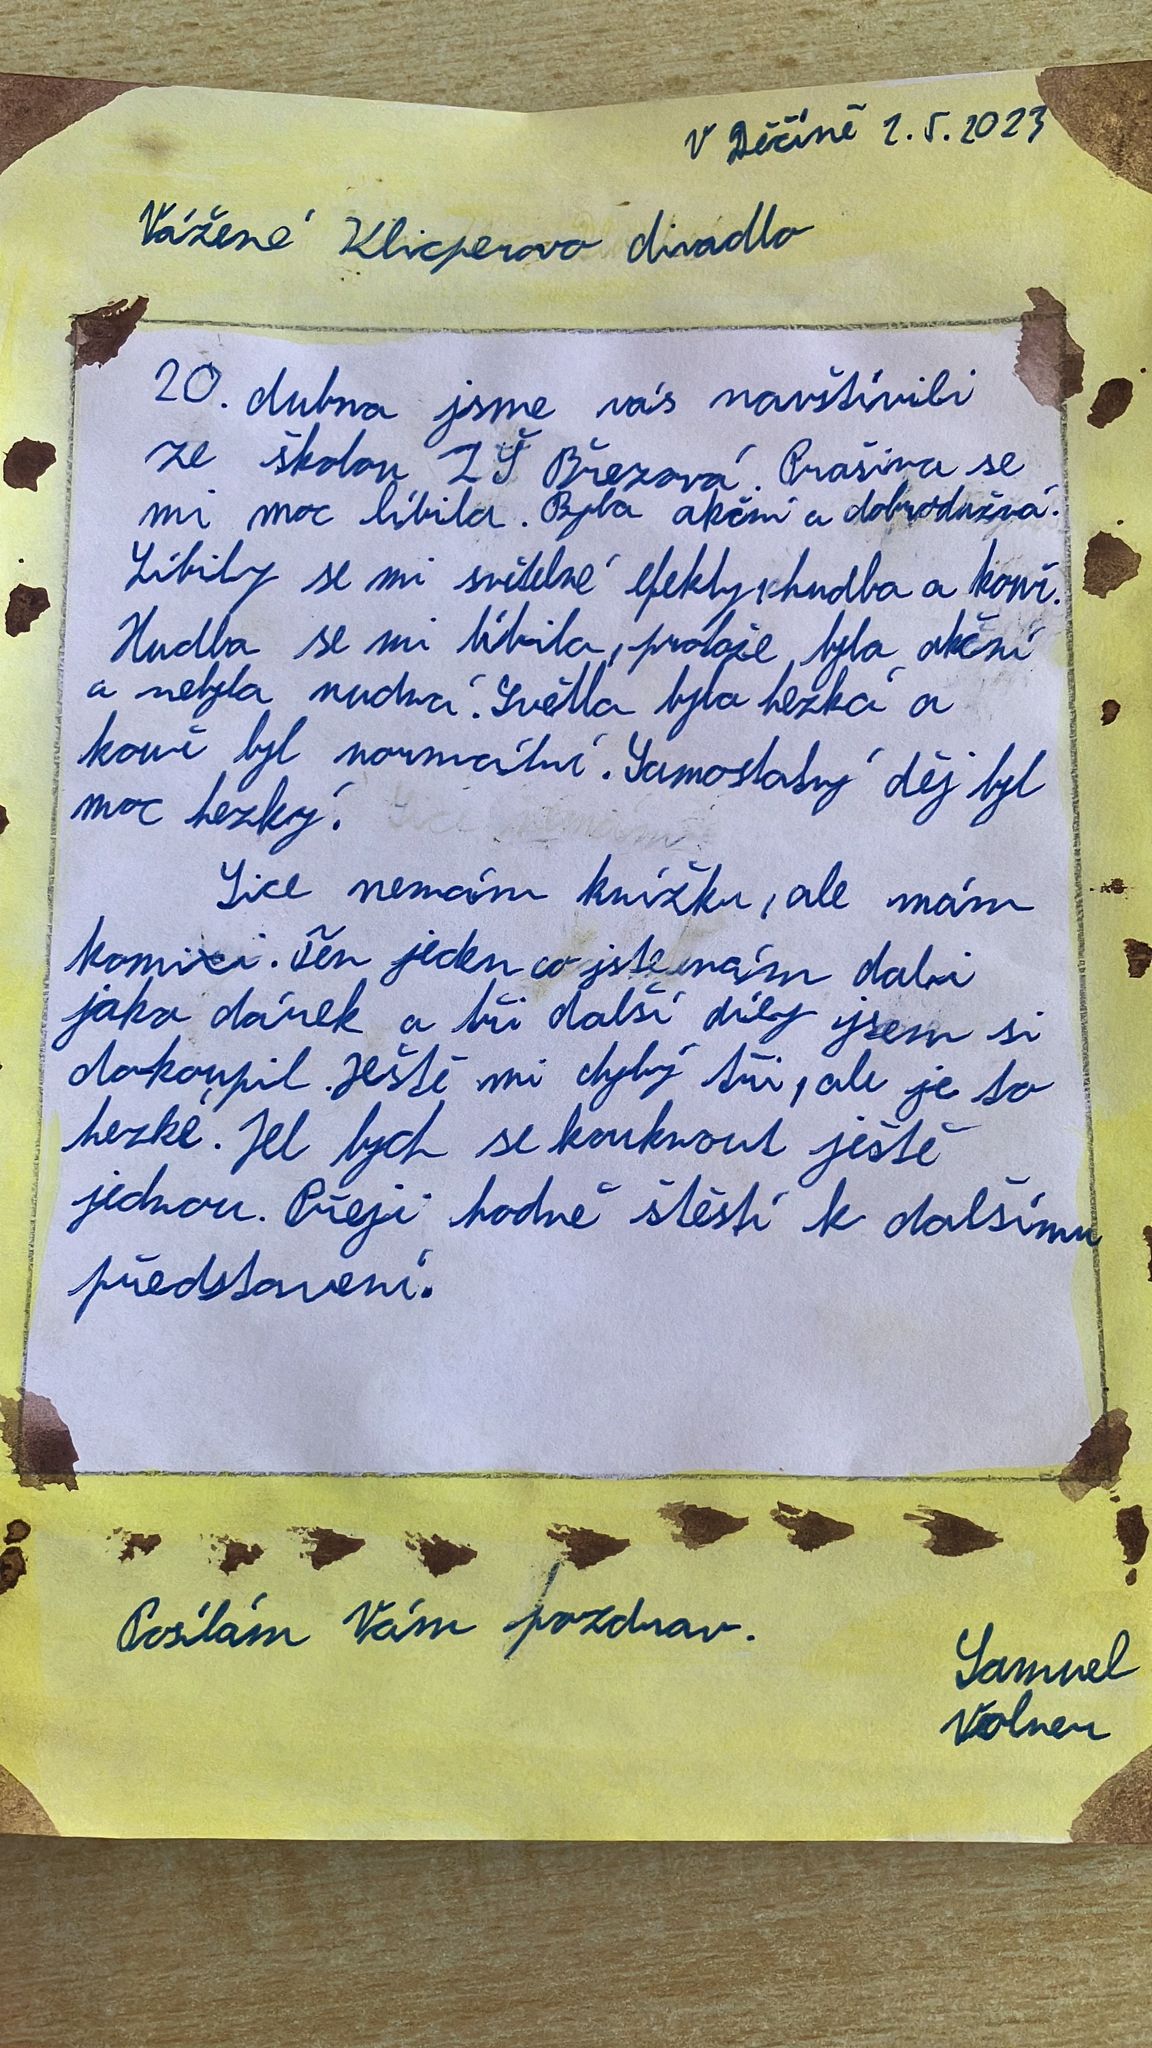 V Děčíně 2.5.2023
Vážené Klicperovo divadlo
20. dubna jsme vás navštívili
ze školou ZŠ Březová. Prašina se
mi moc líbila. Byla akční a dobrodužná.
Líbily se mi světelné efekty, hudba a kouř.
Hudba se mi líbila, protože byla akční
a nebyla nudná. Světla byla hezká a
kouř byl normální. Samostatný děj byl
moc hezký.
Sice nemám knížku, ale mám
komixi. Ten jeden co jste nám dali
jako dárek a tři další díly jsem si
dokoupil. Ještě mi chybý tři, ale je to
hezké. Jel bych se kouknout ještě
jednou. Přeji hodně štěstí k dalšímu
představení.
Posílám Vám pozdrav.
Samuel
Volner